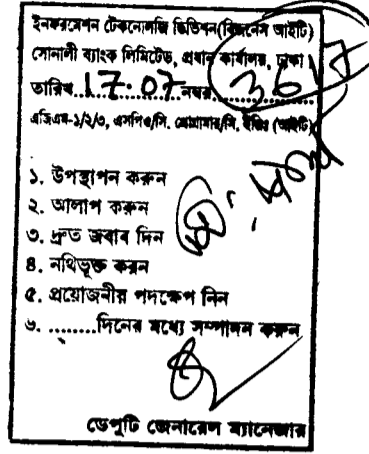 ইনফরমেশন টেকনোলজি ডিভিশন(বিজনেস আইটি)
সোনালী ব্যাংক লিমিটেড, প্রধান কার্যালয়, ঢাকা
তারিখ 17.07 নম্বর 3617
এজিএম-১/২/৩, এসপিও/সি. প্রোগ্রামার/সি. ইঞ্জিঃ (আইটি)
১. উপস্থাপন করুন
২. আলাপ করুন
৩. দ্রুত জবাব দিন
৪. নথিভূক্ত করন
৫. প্রয়োজনীয় পদক্ষেপ নিন
৬. ........দিনের মধ্যে সম্পাদন করুন
ডেপুটি জেনারেল ম্যানেজার